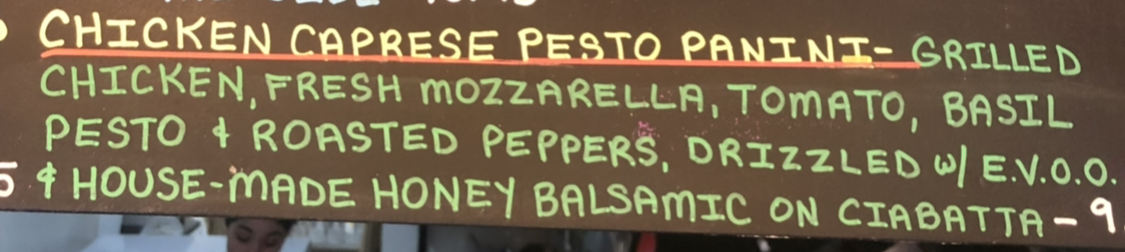 CHICKEN CAPRESE PESTO PANINI- GRILLED
CHICKEN, FRESH MOZZARELLA, TOMATO, BASIL
PESTO & ROASTED PEPPERS, DRIZZLED W/ E.V.O.O.
5 & HOUSE-MADE HONEY BALSAMIC ON CIABATTA - 9